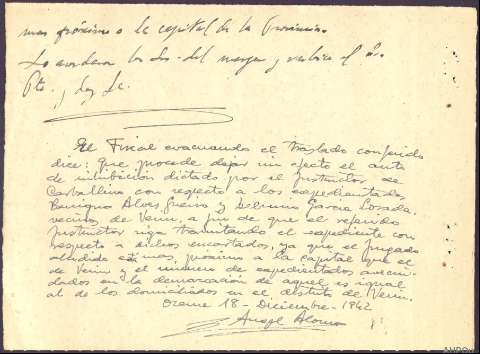 mas próximo a la capital de la Provincia.
Lo acordaron los Sres. del margen y rubrica el Sr.
Pte., doy fe.
El Fiscal evacuando el traslado conferido
dice: Que procede dejar sin efecto el auto
de inhibición dictado por el Instructor de
Carballino con respecto a los expedientados
Benigno Alves y García Losada,
vecinos de Verin, a fin de que el referido
Instructor siga tramitando el expediente con
respecto a dichos encartados, ya que el Juzgado
aludido es mas próximo a la capital que el
de Verin y el número de expedientados avecin-
dados en la demarcación de aquel es igual
al de los domiciliados en el distrito de Verin.
Orense 18 - Diciembre - 1942
Angel Alonso